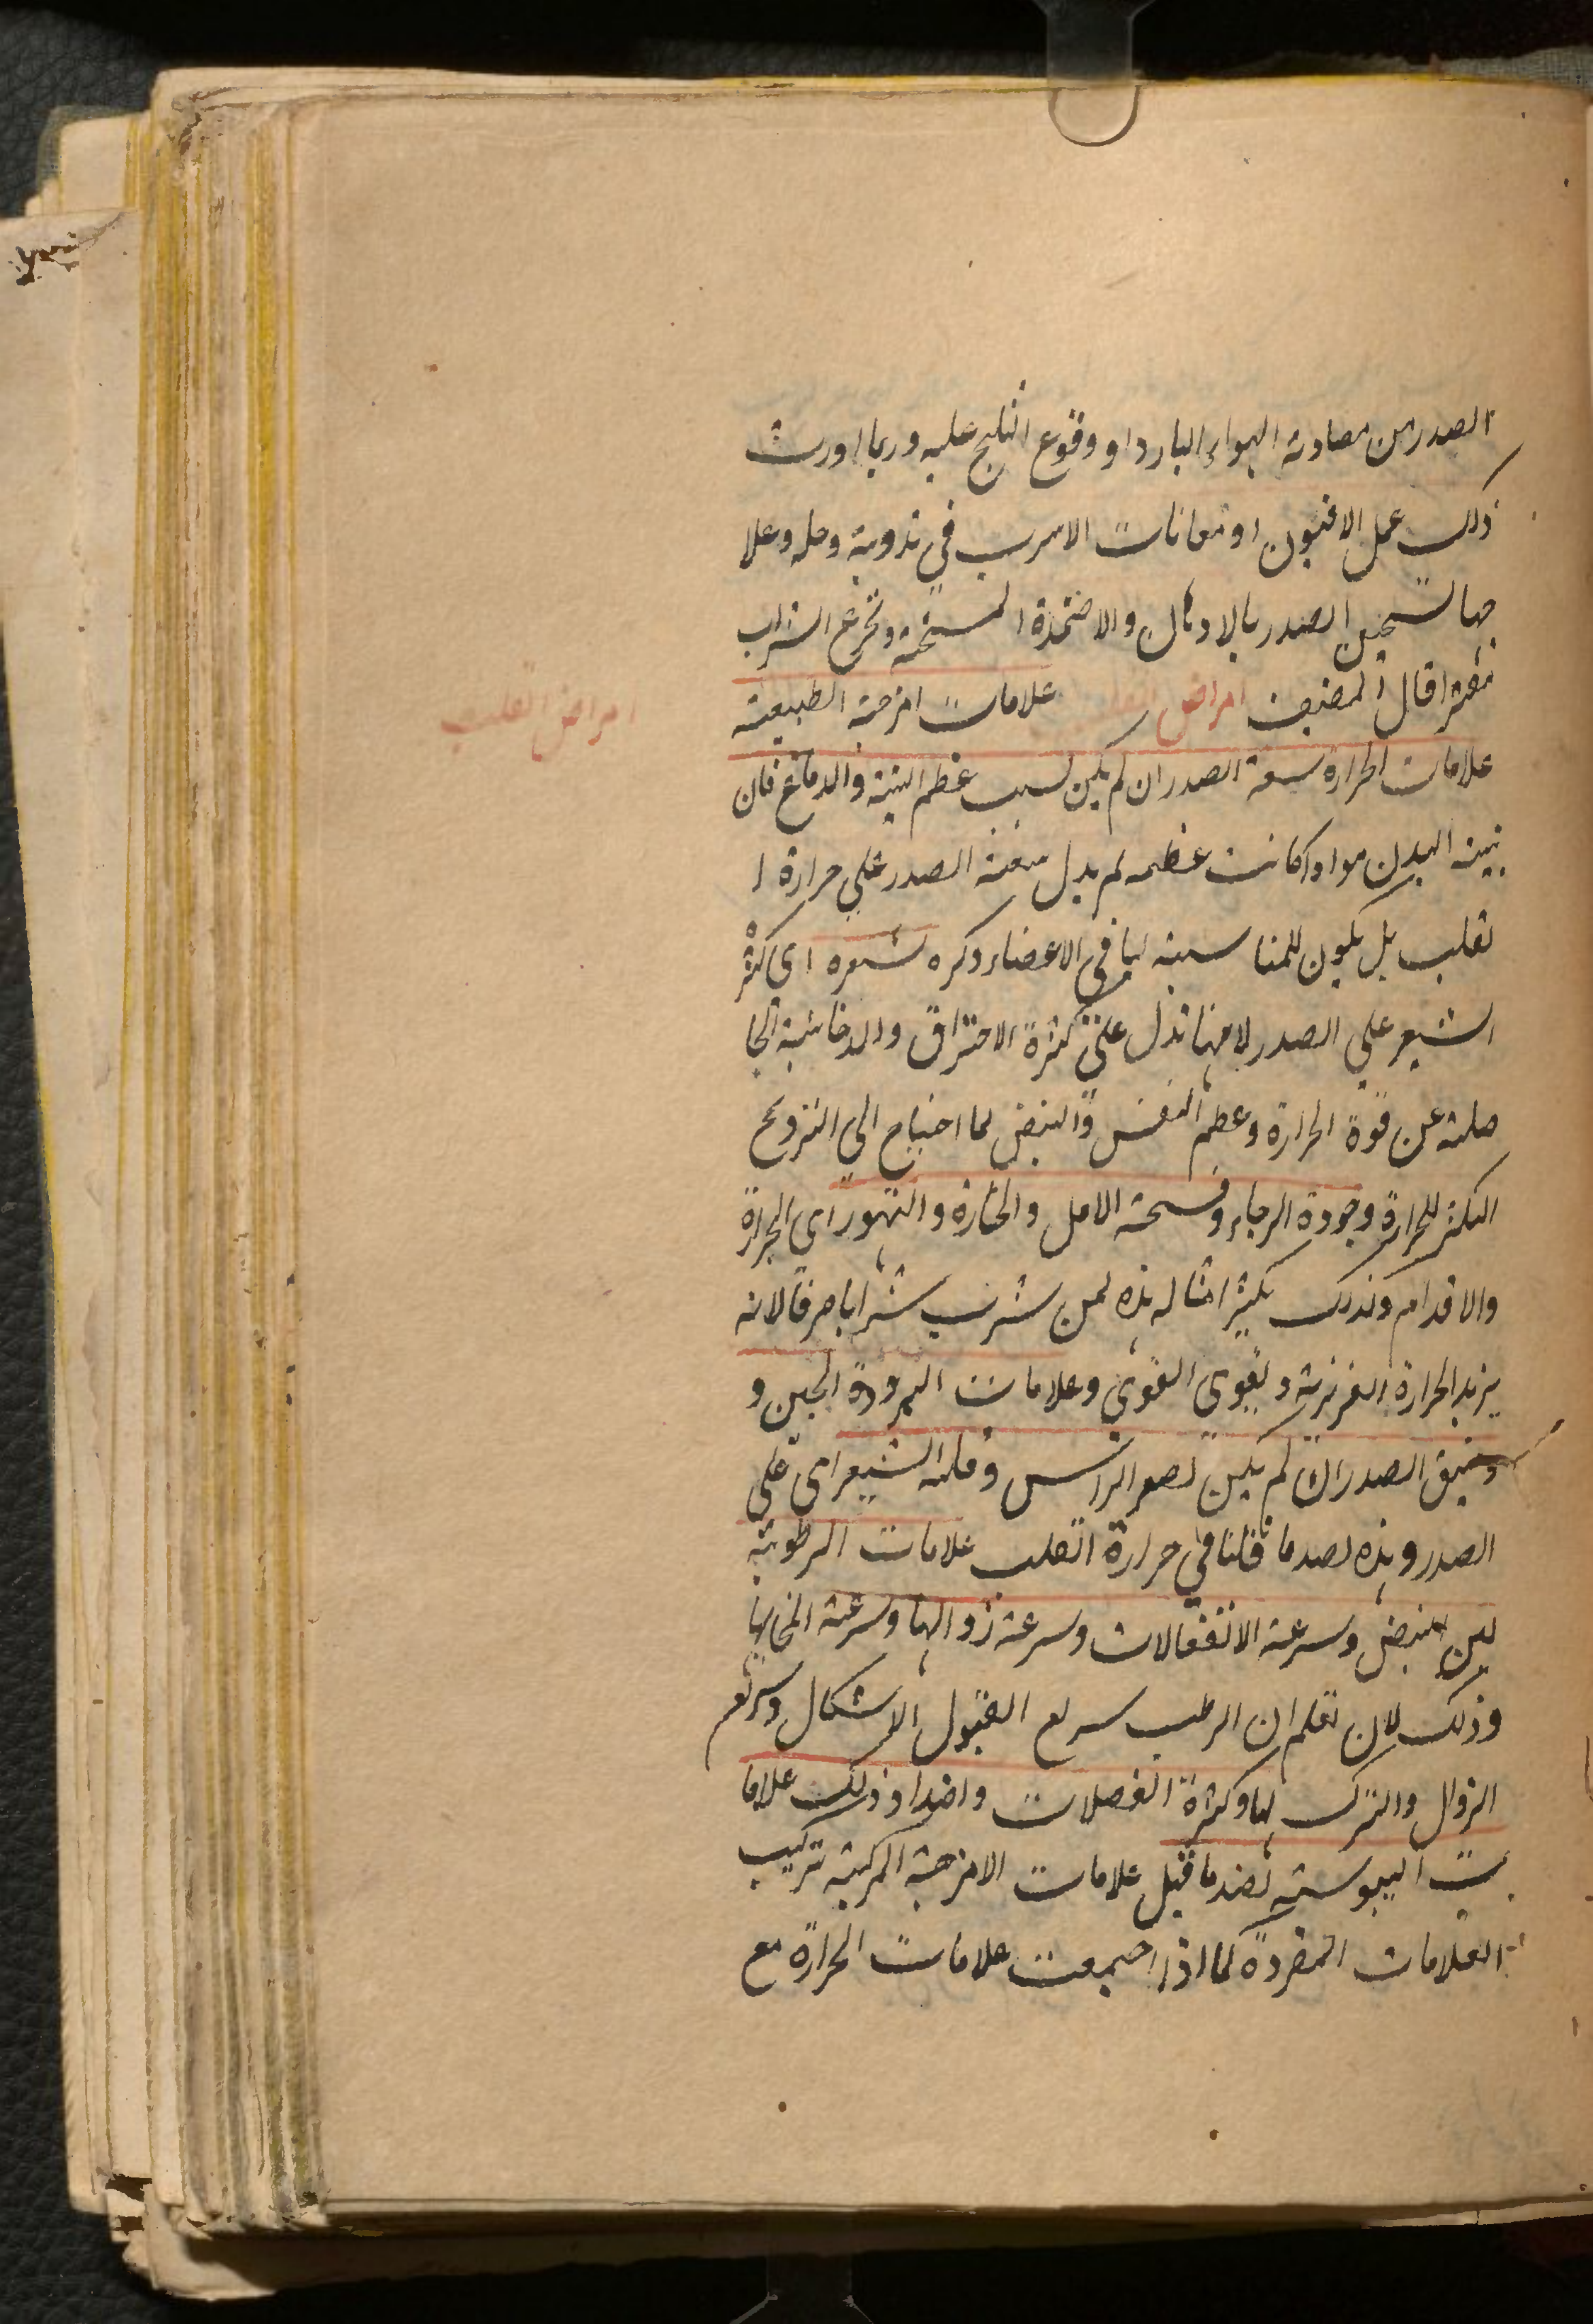 الصدر من مصادمة الهواء البارد او وقوع الثلج عليه وربما اورث
ذلك عمل الافيون او معانات الاسرب في تذويبه وحله وعلا
جها تسخين الصدر بالادهان والاضمدة المسخنة وتجرع الشراب
مفترا قال المصنف امراض القلب علامات امزجة الطبيعة
امراض القلب
علامات الحرارة سعة الصدر ان لم يكن لسبب عظم البنية والدماغ فان
بنية البدن مواد اكانت عظمه لم يدل سعة الصدر على حرارة ا
لقلب بل يكون للمناسبة لباقي الاعضاء وكره شعره اى كثر
الشعر على الصدر لامنها تدل على كثرة الاحتراق والدخانية الحا
صلة عن قوة الحرارة وعظم النفس والنبض لما احتياج الى الترويح
المكثر للحرارة وجودة الرجاء وفسحة الامل والحارة والتهور اى الجراة
والاقدام وكذلك يكثر امثاله هذه لمن شرب شرابا صرفا لانه
يزيد الحرارة الغريزية ويقوى القوى وعلامات البرودة الجبن و
وضيق الصدر ان لم يكن لصغر الراس وقلة الشعر اى على
الصدر وهذه لصد ما قلنا في حرارة القلب علامات الرطوبة
لين النبض وسرعة الانفعالات وسرعة زوالها وسرعة
وذلك لان تعلم ان الرطب سريع القبول الاشكال وسريع
الزوال والترك لها وكثرة الفضلات واضداد ذلك علاما
ت اليبوسة لضد ما قيل علامات الامزجة المركبة تركيب
العلامات المفردة كما اذا اجمعت علامات الحرارة مع